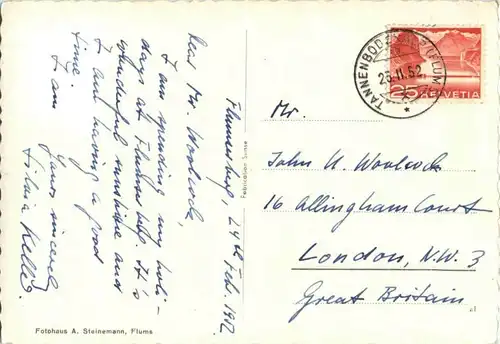 Flumserberg, 24th Feb. 1952
Dear Mr. Woolcock,
I am spending my holi-
days at Flumserberg. It's
wonderful sunshine and
I am having a good
time.
I am
Yours sincerely
Silvia Keller
Fotohaus A. Steinemann, Flums
Fabrication Suisse
TANNENBODENALP (FLUMS)
25.II.52.
25 HELVETIA
Mr.
John W. Woolcock
16 Allingham Court
London, N.W. 3
Great Britain